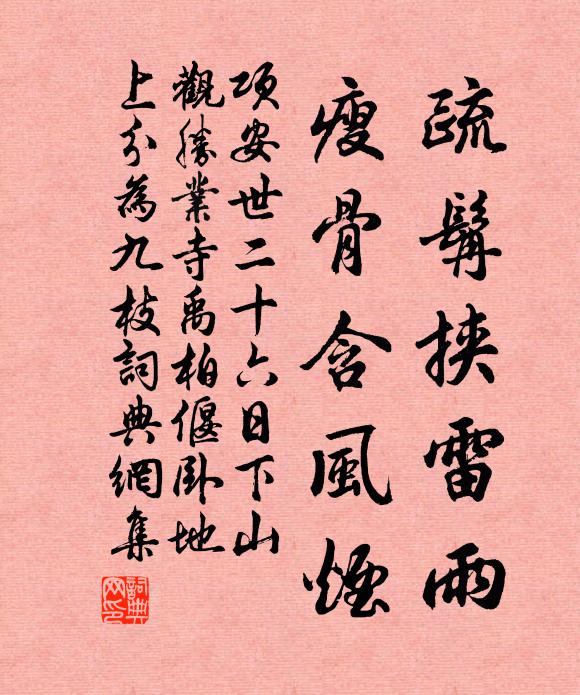 疏髯挟雷雨
瘦骨含風煙
項安世二十六日下山
觀勝業寺禹柏偃卧地
上分為九枝詞典網集
詞典
网印